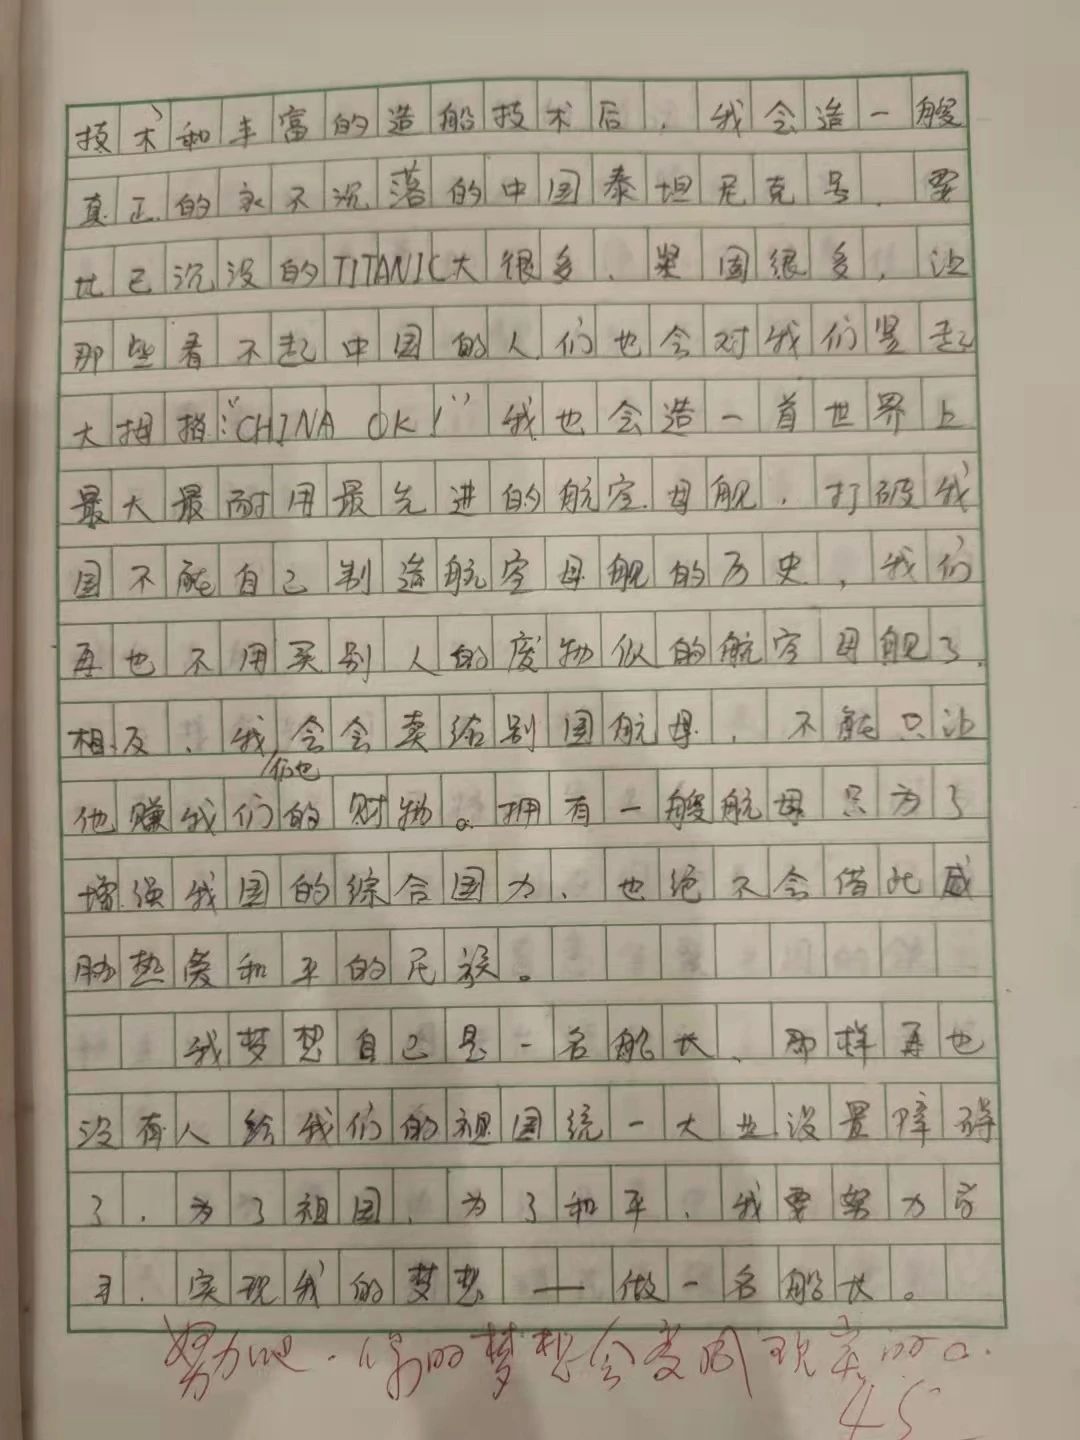 技术和丰富的造船技术后，我会造一艘
真正的永不沉落的中国泰坦尼克号，要
比已沉没的TITANIC大很多，坚固很多，让
那些看不起中国的人们也会对我们竖起
大拇指:"CHINA OK!"我也会造一首世界上
最大最耐用最先进的航空母舰，打破我
国不能自己制造航空母舰的历史，我们
再也不用买别人的废物似的航空母舰了，
相反，我们也会会卖给别国航母，不能只让
他赚我们的财物。拥有一艘航母只为了
增强我国的综合国力，也绝不会借此威
胁热爱和平的民族。
我梦想自己是一名船长，那样再也
没有人给我们的祖国统一大业设置障碍
了，为了祖国，为了和平，我要努力学
习，实现我的梦想——做一名船长。
努力吧，你的梦想会变成现实的。
45